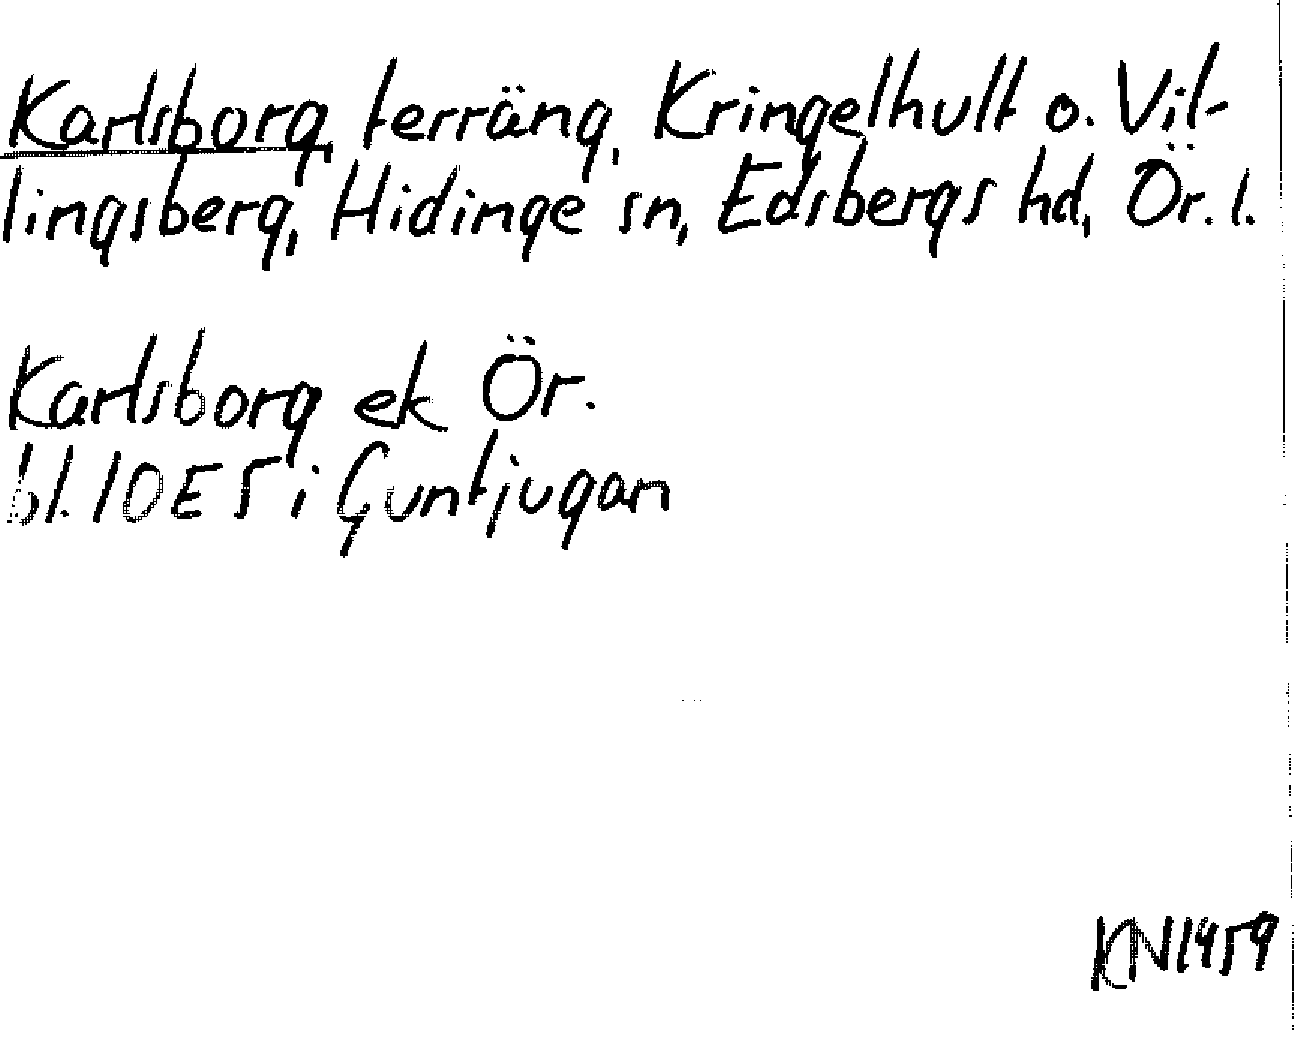 Karlsborg, terräng, Kringelhult o. Vil-
lingsberg, Hidinge sn, Edsbergs hd, Ör. l.
Karlsborg ek Ör.
bl. 10E5 i Guntjugan
KN1959